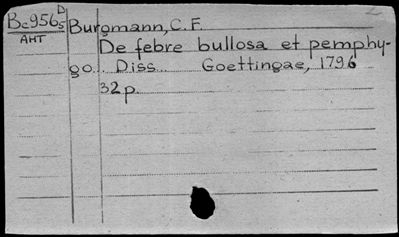 Bc956 D/5 Burgmann, C.F.
АНТ De febre bullosa et pemphy-
go... Diss... Goettingae, 1796
32p.